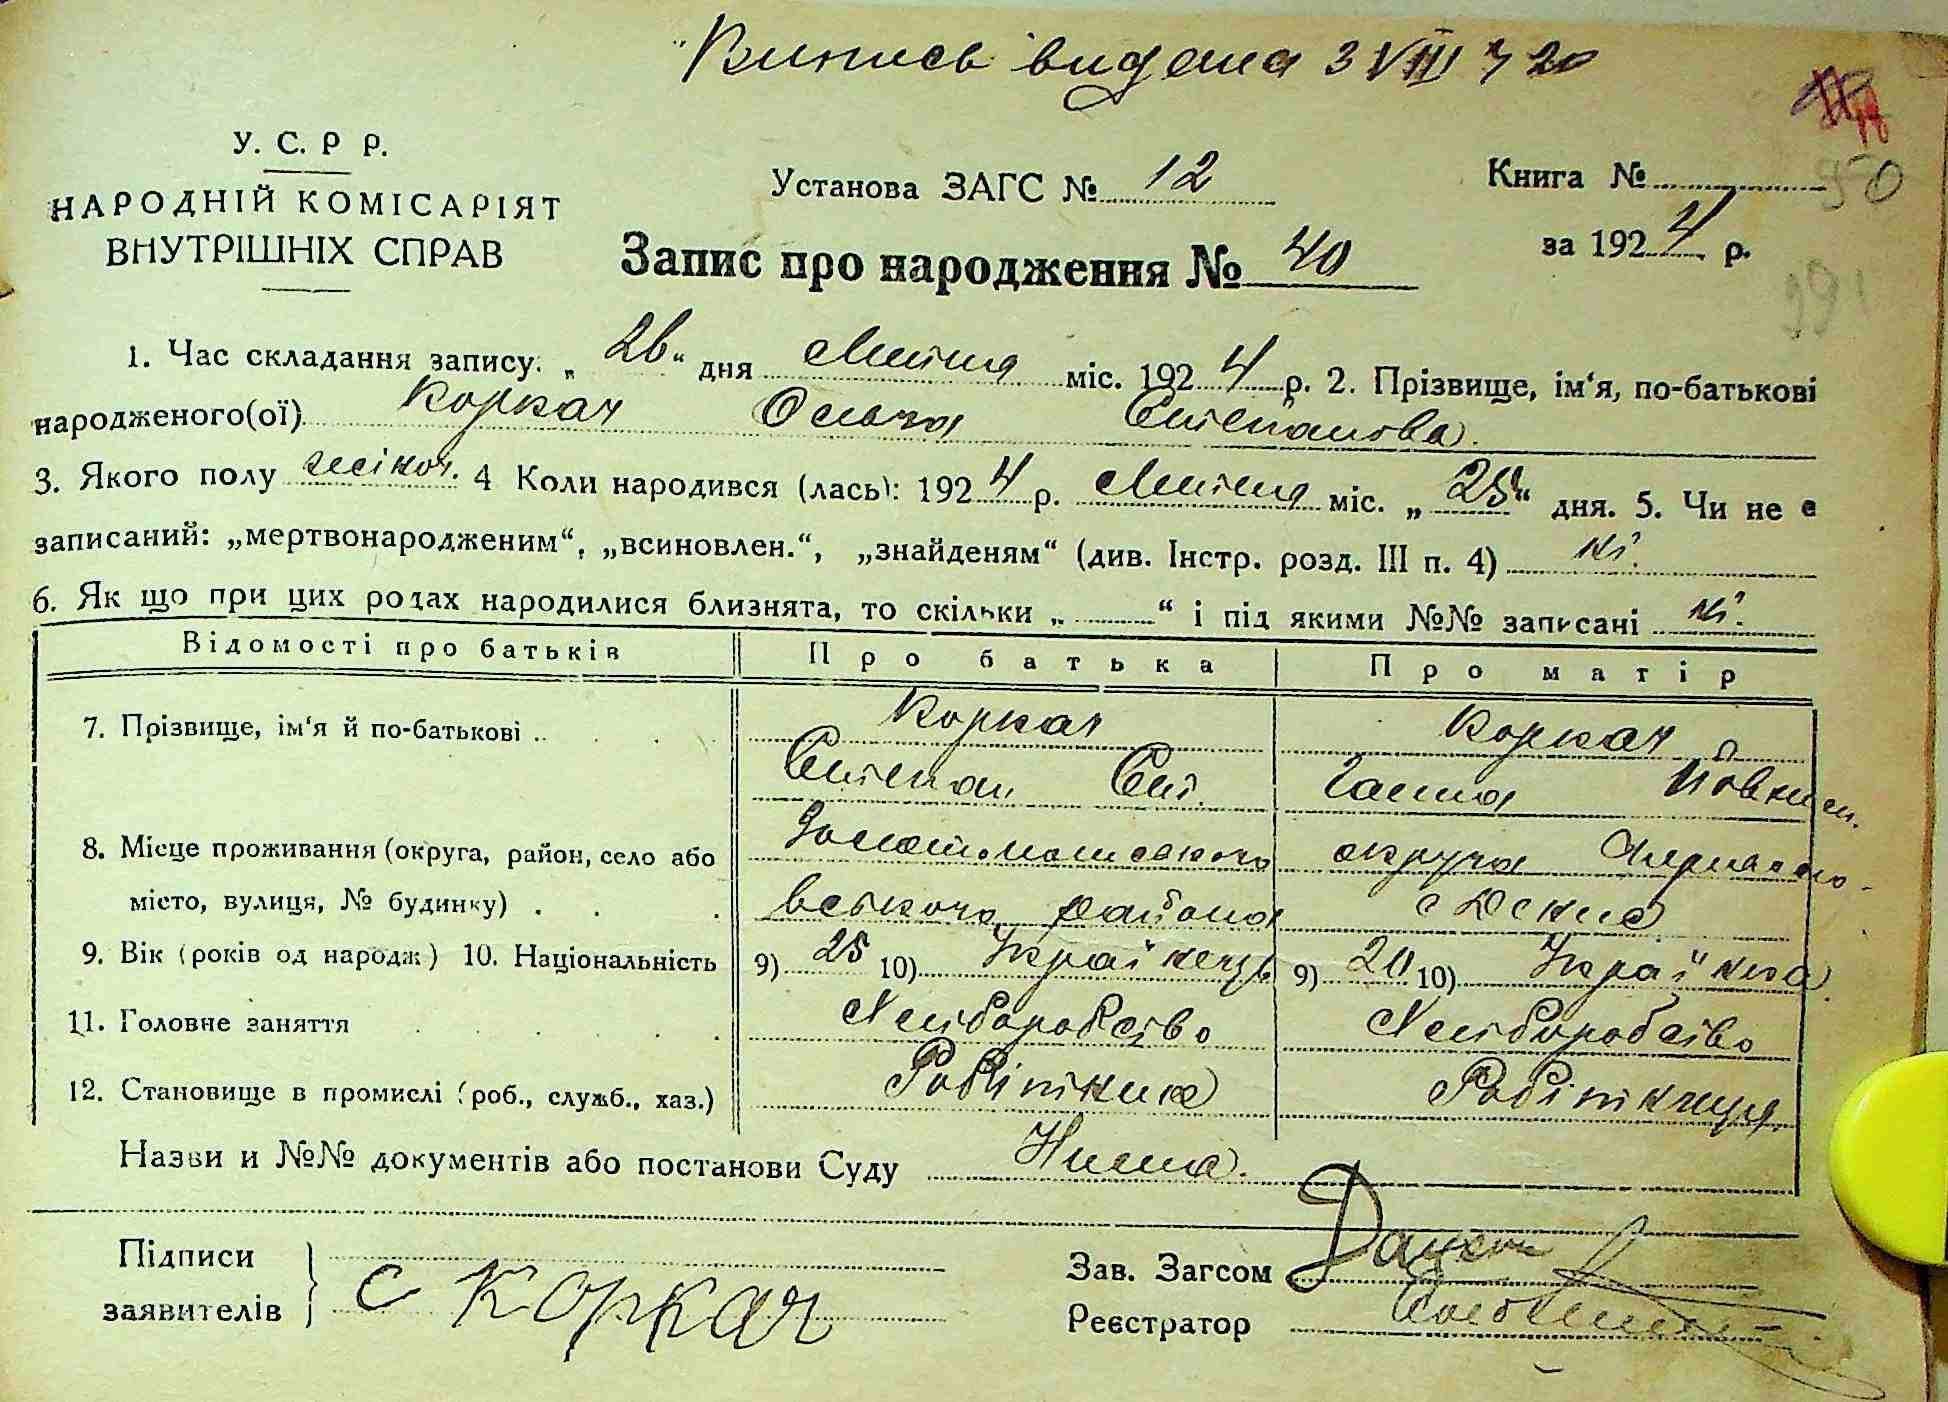 Випись видана 3 VIII
У. С. Р Р.
НАРОДНІЙ КОМІСАРІЯТ
ВНУТРІШНІХ СПРАВ
Установа ЗАГС № 12
Книга №
950
Запис про народження № 40
за 1924 р.
391
1. Час складання запису: „ 26 “ дня Липня міс. 1924 р. 2. Прізвище, ім‘я, по-батькові
народженого(ої) Коркач Ольга Степанова.
3. Якого полу жіноч. 4 Коли народився (лась): 1924 р. Липня міс. „ 25 “ дня. 5. Чи не є
записаний: „мертвонародженим“, „всиновлен.“, „знайденям“ (див. Інстр. розд. III п. 4) ні.
6. Як що при цих родах народилися близнята, то скільки „ “ і під якими №№ записані ні.
Відомості про батьків Про батька Про матір
7. Прізвище, ім‘я й по-батькові Коркач Коркач
Степан Ст. Ганна
8. Місце проживання (округа, район, село або Золотоношського округа
місто, вулиця, № будинку) району с
9. Вік (років од народж) 10. Національність 9) 25 10) Украінець 9) 20 10) Украінка
11. Головне заняття Хліборобство Хліборобство
12. Становище в промислі (роб., служб., хаз.) Робітник Робітниця
Назви и №№ документів або постанови Суду Нима.
Підписи
заявителів
С Коркач
Зав. Загсом
Реєстратор